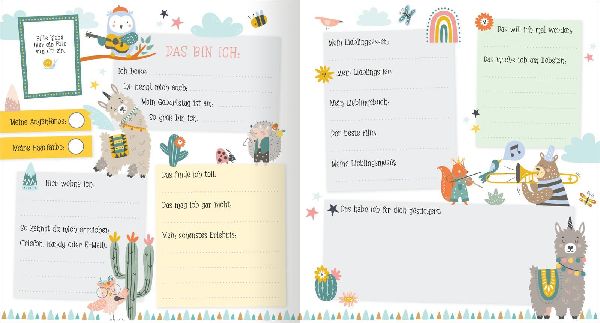 Bitte klebe
hier ein Foto
von dir ein.
DAS BIN ICH:
Ich heiße:
So nennt mich auch:
Mein Geburtstag ist am:
So groß bin ich:
Meine Augenfarbe:
Meine Haarfarbe:
Hier wohne ich:
So kannst du mich erreichen
(Telefon, Handy oder E-Mail):
Das finde ich toll:
Das mag ich gar nicht:
Mein schönstes Erlebnis:
Mein Lieblings
Mein Lieblings
Mein Lieblingsbuch:
Der beste Film:
Meine Lieblingsmusik:
Das will ich mal werden:
Das spiele ich am liebsten:
Das habe ich für dich gestaltet: